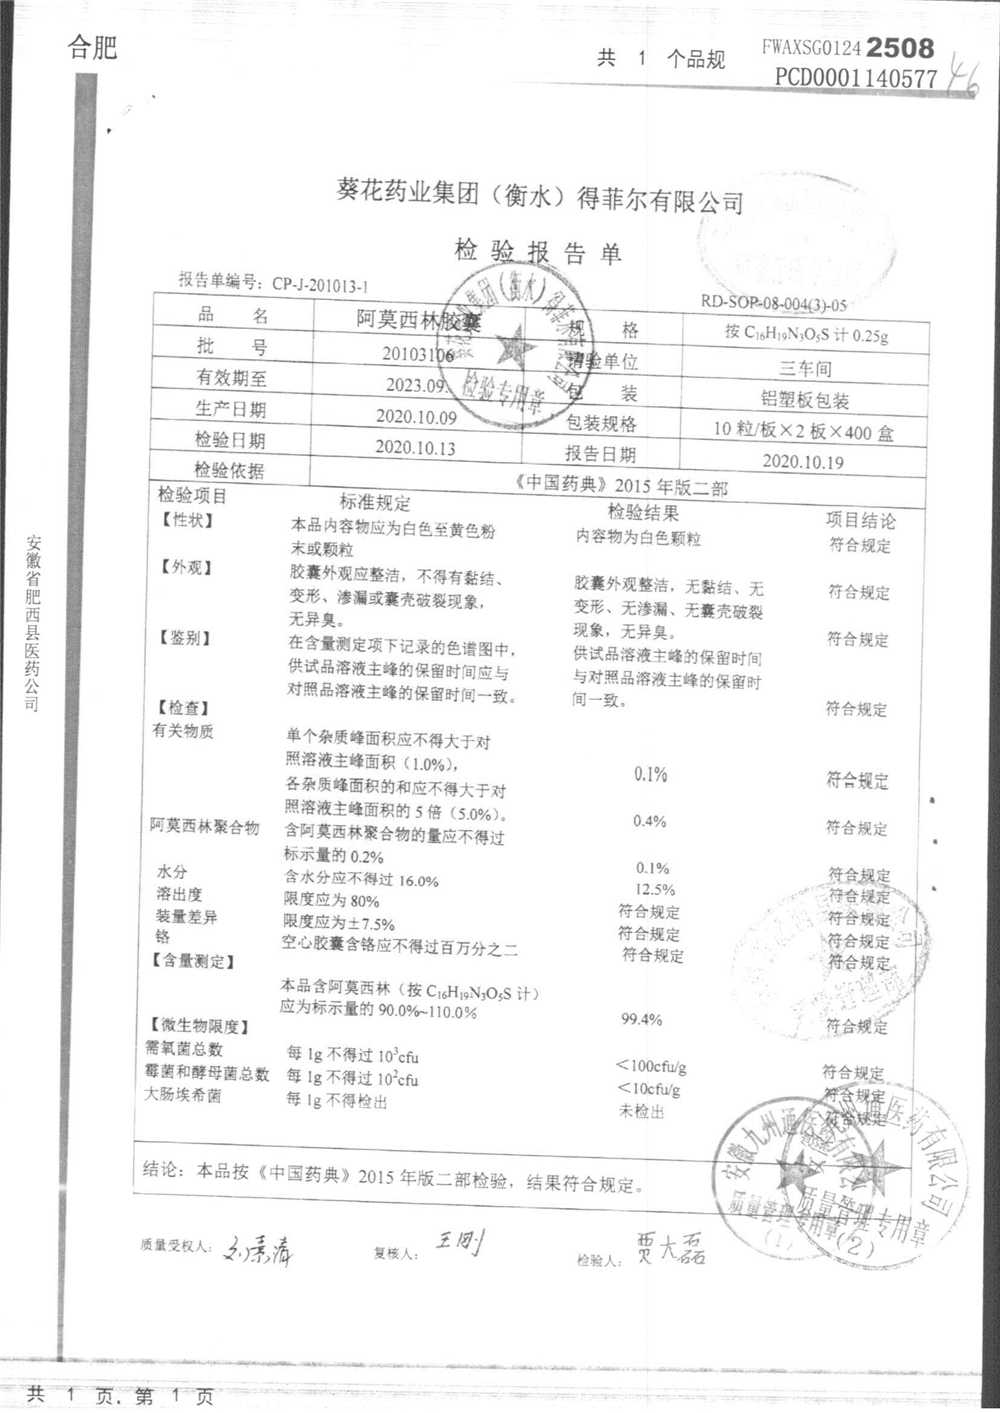 合肥
共 1 个品规
FWAXSG0124 2508
PCD0001140577
46
葵花药业集团（衡水）得菲尔有限公司
检验报告单
报告单编号：CP-J-201013-1
RD-SOP-08-004(3)-05
品 名 阿莫西林胶囊 规 格 按 C16H19N3O5S 计 0.25g
批 号 20103106 请验单位 三车间
有效期至 2023.09. 包 装 铝塑板包装
生产日期 2020.10.09 包装规格 10 粒/板×2 板×400 盒
检验日期 2020.10.13 报告日期 2020.10.19
检验依据 《中国药典》2015 年版二部
检验项目 标准规定 检验结果 项目结论
【性状】 本品内容物应为白色至黄色粉 内容物为白色颗粒 符合规定
末或颗粒
【外观】 胶囊外观应整洁，不得有黏结、 胶囊外观整洁，无黏结、无 符合规定
变形、渗漏或囊壳破裂现象， 变形、无渗漏、无囊壳破裂
无异臭。 现象，无异臭。
【鉴别】 在含量测定项下记录的色谱图中， 供试品溶液主峰的保留时间 符合规定
供试品溶液主峰的保留时间应与 与对照品溶液主峰的保留时
对照品溶液主峰的保留时间一致。 间一致。
【检查】 符合规定
有关物质 单个杂质峰面积应不得大于对
照溶液主峰面积（1.0%）， 0.1% 符合规定
各杂质峰面积的和应不得大于对
照溶液主峰面积的 5 倍（5.0%）。 0.4% 符合规定
阿莫西林聚合物 含阿莫西林聚合物的量应不得过
标示量的 0.2% 0.1% 符合规定
水分 含水分应不得过 16.0% 12.5% 符合规定
溶出度 限度应为 80% 符合规定 符合规定
装量差异 限度应为±7.5% 符合规定 符合规定
铬 空心胶囊含铬应不得过百万分之二 符合规定 符合规定
【含量测定】
本品含阿莫西林（按 C16H19N3O5S 计）
应为标示量的 90.0%~110.0% 99.4% 符合规定
【微生物限度】
需氧菌总数 每 1g 不得过 10³cfu ＜100cfu/g 符合规定
霉菌和酵母菌总数 每 1g 不得过 10²cfu ＜10cfu/g 符合规定
大肠埃希菌 每 1g 不得检出 未检出 符合规定
结论：本品按《中国药典》2015 年版二部检验，结果符合规定。
质量受权人： 复核人：王刚 检验人：贾大磊
检验专用章
安徽九州通医药有限公司
质量管理专用章
（1）
医药有限公司
质量管理专用章
（2）
安徽省肥西县医药公司
共 1 页，第 1 页